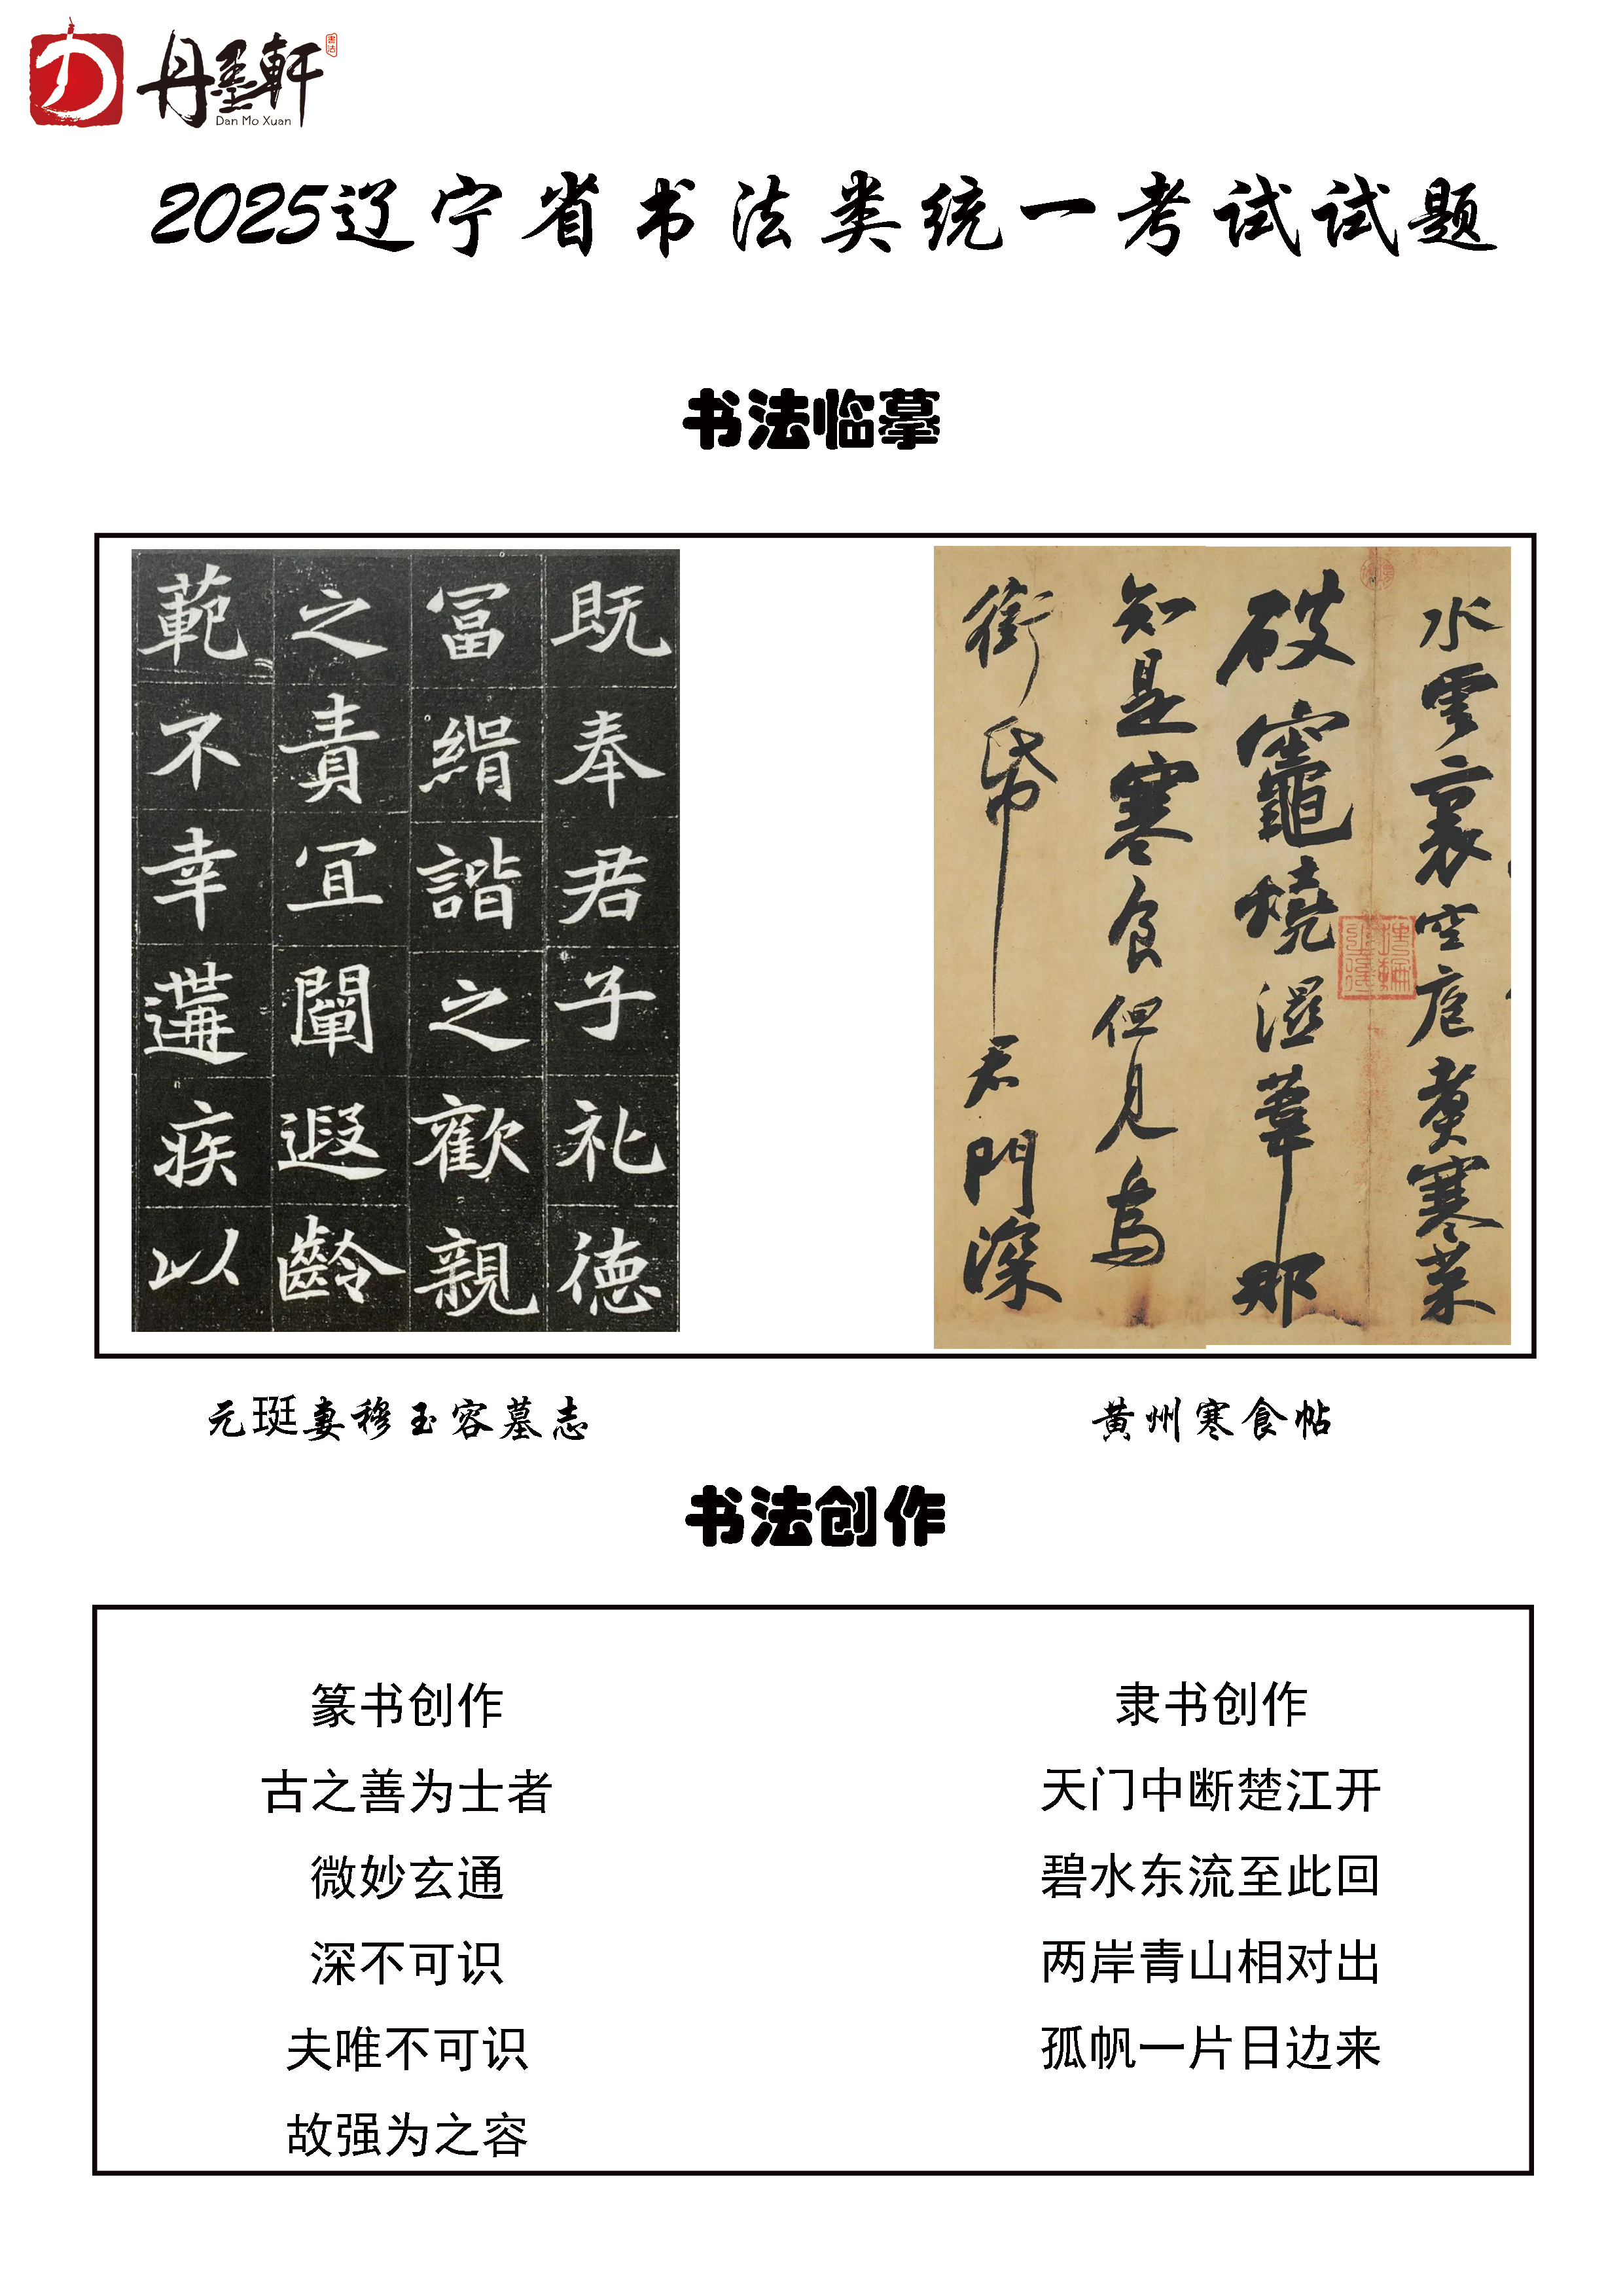 丹墨軒
书法
Dan Mo Xuan
2025辽宁省书法类统一考试试题
书法临摹
既奉君子礼德
冨緝諧之歡親
之責冝闡遐齡
範不幸遘疾以
水雲裏空庖煮寒菜
破竈燒濕葦那
知是寒食但見烏
銜帋君門深
元珽妻穆玉容墓志
黄州寒食帖
书法创作
篆书创作
古之善为士者
微妙玄通
深不可识
夫唯不可识
故强为之容
隶书创作
天门中断楚江开
碧水东流至此回
两岸青山相对出
孤帆一片日边来